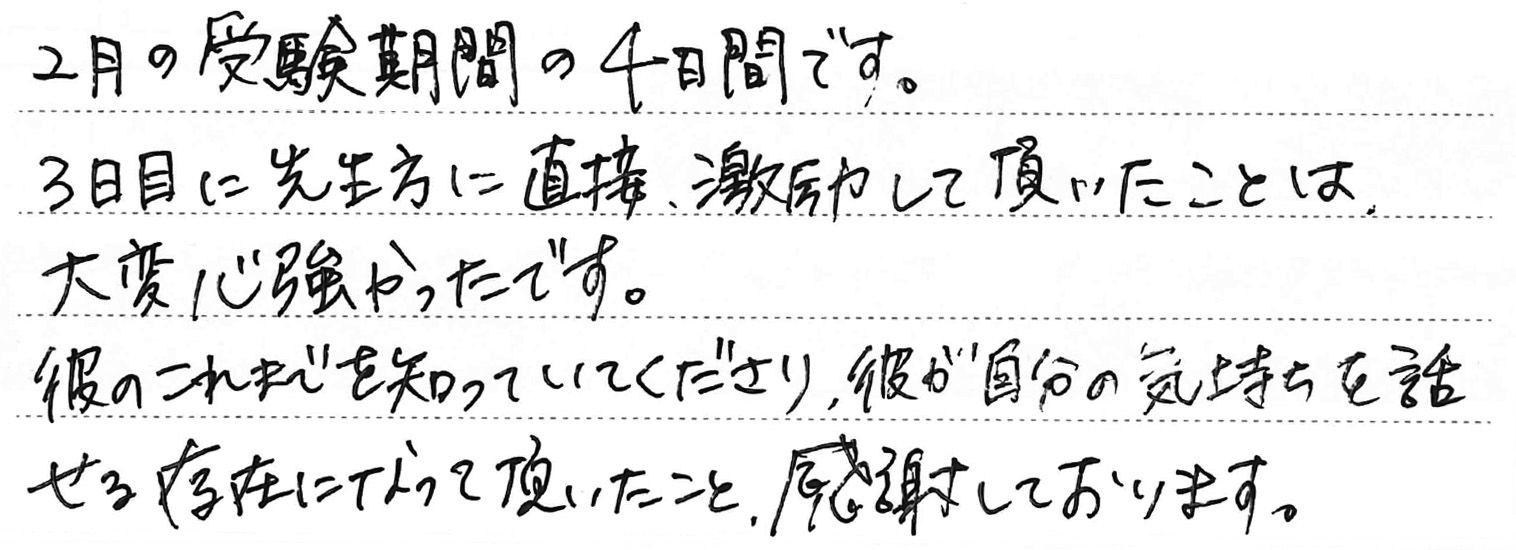 2月の受験期間の4日間です。
3日目に先生方に直接、激励して頂いたことは、
大変心強かったです。
彼のこれまでを知っていてくださり、彼が自分の気持ちを話
せる存在になって頂いたこと、感謝しております。